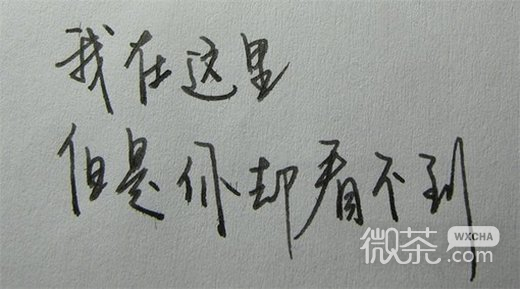 我在这里
但是你却看不到
微茶
WXCHA